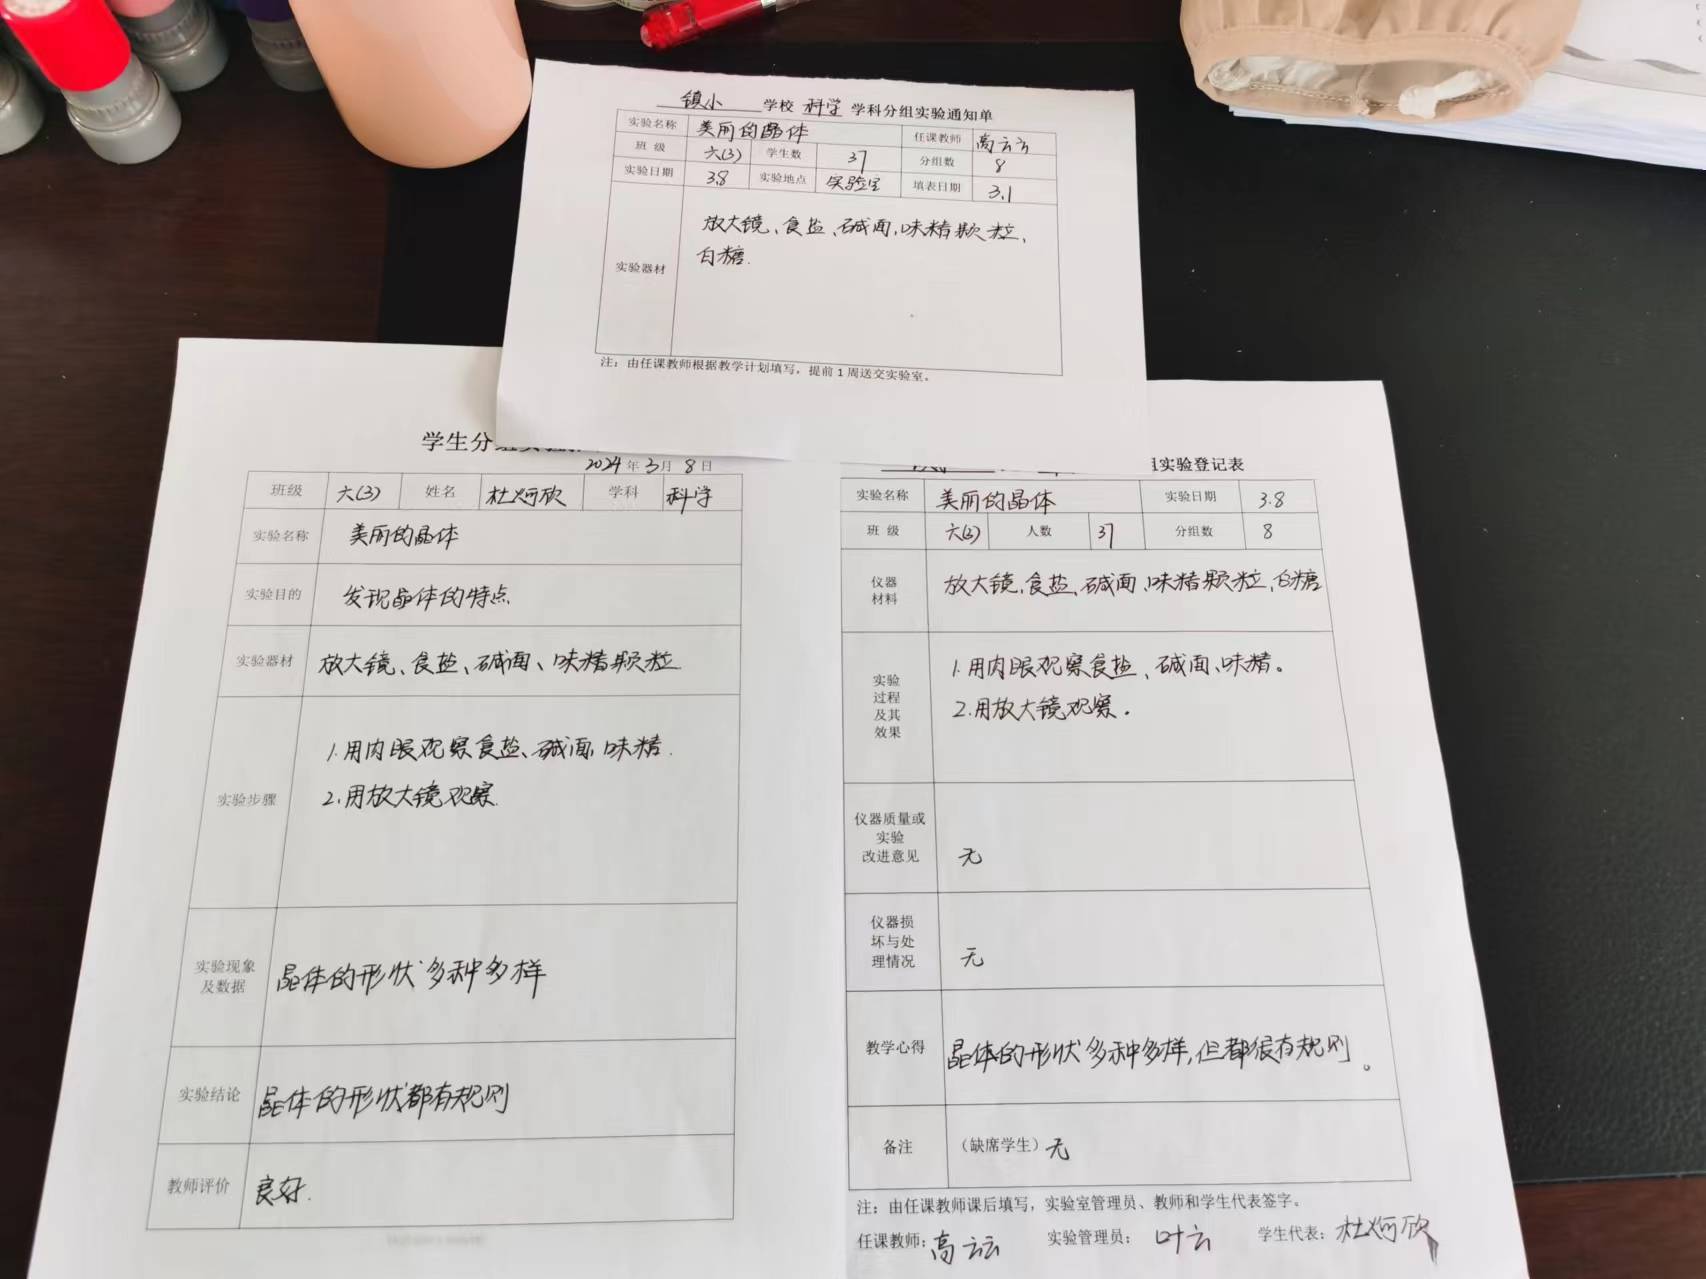 镇小 学校 科学 学科分组实验通知单
实验名称 美丽的晶体 任课教师 高云云
班 级 六(3) 学生数 37 分组数 8
实验日期 3.8 实验地点 实验室 填表日期 3.1
实验器材 放大镜、食盐、碱面,味精颗粒、
白糖.
注:由任课教师根据教学计划填写,提前1周送交实验室。
学生分
2024年3月8日
班级 六(3) 姓名 杜炣欣 学科 科学
实验名称 美丽的晶体
实验目的 发现晶体的特点
实验器材 放大镜、食盐、碱面、味精颗粒
实验步骤
1.用肉眼观察食盐、碱面,味精.
2.用放大镜观察.
实验现象
及数据
晶体的形状多种多样
实验结论 晶体的形状都有规则
教师评价 良好.
组实验登记表
实验名称 美丽的晶体 实验日期 3.8
班 级 六(3) 人数 37 分组数 8
仪器
材料
放大镜、食盐、碱面、味精颗粒、白糖
实验
过程
及其
效果
1.用肉眼观察食盐、碱面、味精。
2.用放大镜观察。
仪器质量或
实验
改进意见
无
仪器损
坏与处
理情况
无
教学心得 晶体的形状多种多样,但都很有规则。
备注 (缺席学生)无
注:由任课教师课后填写,实验室管理员、教师和学生代表签字。
任课教师:高云云 实验管理员:叶云 学生代表:杜炣欣